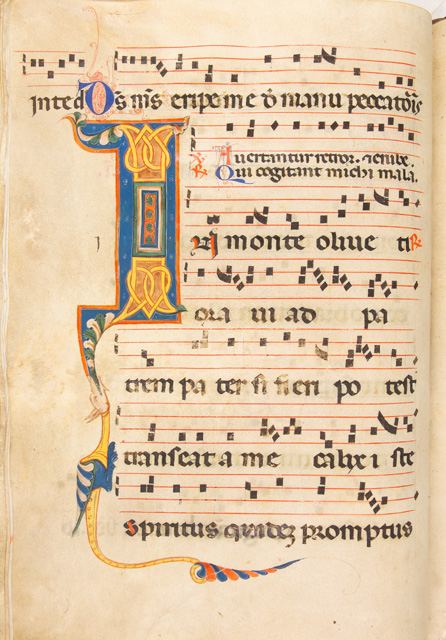 in te d Os m̄s eripe me d̄ manu peccatoris
Auertantur retror. ⁊ erube.
Qui cogitant michi mala.
In monte oliue ti ℟
ora ui ad pa
trem pa ter si fieri po test
transeat a me calix i ste
Spiritus quidez promptus